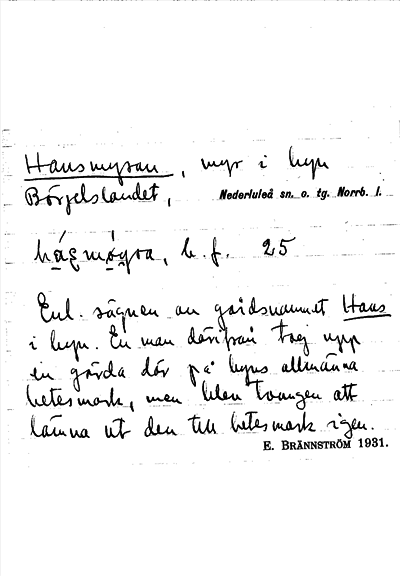 Hansmyran, myr i byn
Börjelslandet, Nederluleå sn. o. tg. Norrb. l.
b. f. 25
Enl. sägnen av gårdsnamnet Hans
i byn. En man därifrån tog upp
en gärda där på byns allmänna
betesmark, men blev tvungen att
lämna ut den till betesmark igen.
E. BRÄNNSTRÖM 1931.